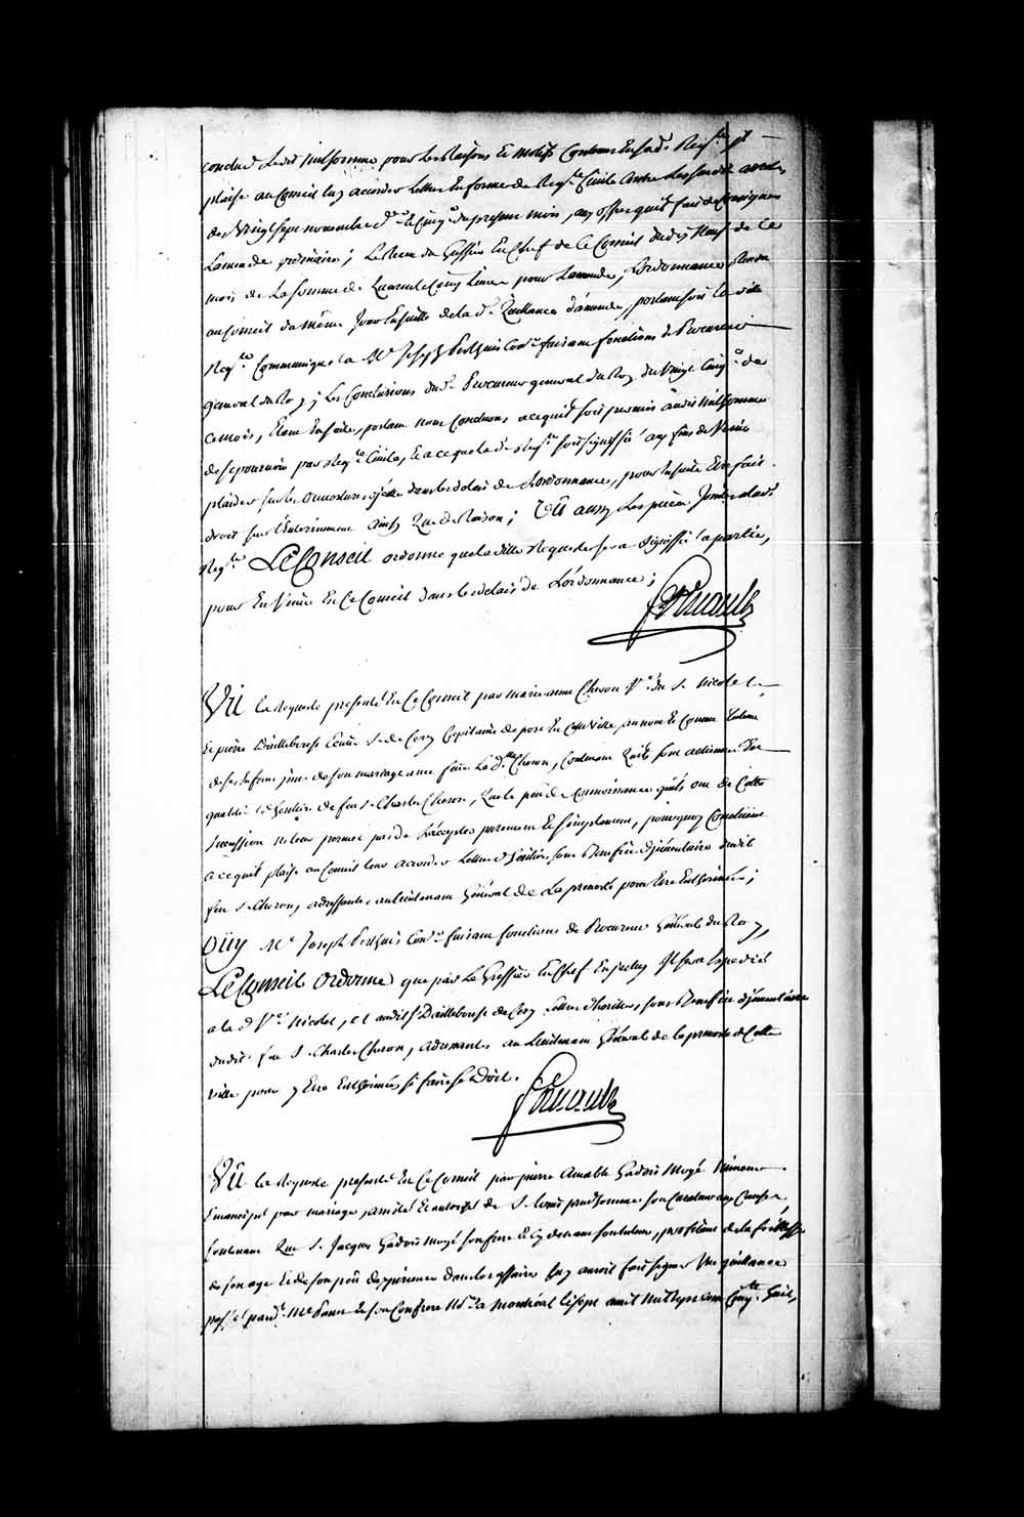 conclud ledit millhomme pour les Raisons et motifs Contenus En sad. Reqte. Il
plaise au Conseil luy accorder Lettre En forme de Reqte. Civile Contre Les susdits arrets
des Vingt sept novembre dr. et Cinqe. du present mois, aux offres quil fait de Consigner
Lamende ordinaire; Le Receu du Greffier En Chef de Ce Conseil du dix Neuf de Ce
mois de La somme de quarente Cinq Livres pour Lamende, Lordonnance Rendu
au Conseil du même Jour Ensuitte de la d. Quittance damende, portant soit la ditte
Reqte. Communiquée a Me Joseph Perthuis Conr. faisant fonctions de Procureur
general du Roy; Les Conclusions dud. Procureur general du Roy du Vingt Cinqe. de
ce mois, Etant Ensuite, portant nous Consentons a ce quil soit permis audit millhomme
de se pourvoir par Reqte. Civile, et a ce que lad. Reqte. soit signiffiée aux fins de Venir
plaider sur les ouvertures dicelle dans les delais de Lordonnance, pour Ensuite Etre fait
droit sur Lenterinement ainsy que de Raison; Vû aussy Les pieces Jointes a lad.
Reqte. Le Conseil ordonne que la ditte Requeste sera signiffiée a partie,
pour En Venir En Ce Conseil dans les delais de Lordonnance;
Vû la Requeste presentée En Ce Conseil par marie anne Cheron Ve. du S. Nicolet
et pierre Dailleboust Ecuier S. de Cery Capitaine de port En Cette Ville, au nom et Comme tuteur
de ses Enfans jssus de son mariage avec feüe La dlle. Cheron, Contenant Quils sont actionnés En
qualité dheritiers de feu S. Charles Cheron, Que le peu de Connoissance quils ont de Cette
Succession ne leur permet pas de Laccepter purement et Simplement, pourquoy Concluent
a ce quil plaise au Conseil leur accorder Lettres dheritiers sous Benefice djnventaire dudit
feu S. Cheron, adressantes au Lieutenant Général de La prevosté pour Etre Enterinées;
Oüy Me Joseph Perthuis Conr. faisant fonctions de Procureur Général du Roy,
Le Conseil Ordonne que par Le Greffier En Chef En jceluy Il sera Expedié
a la d Ve. Nicolet, et audit S. Dailleboust de Cery Lettres dheritiers, sous Benefice djnventaire
dudit feu S Charles Cheron, adressantes au Lieutenant Général de la prevosté de Cette
Ville pour y Etre Enterinées si faire se Doit.
Vû la Requeste presentée En Ce Conseil par pierre Amable Gadois Mogé Mineur
Emancipé par mariage, assisté et autorisé de S. Louis prudhomme son Curateur aux Causes,
Contenant Que S. Jacques Gadois Mogé son frere et Cy devant son tuteur, profitant de la foiblesse
de son age et de son peu dexperience dans les affaires luy auroit fait signer Une quittance
pass. pard. Me Danré et son Confrere Nore. a Montréal